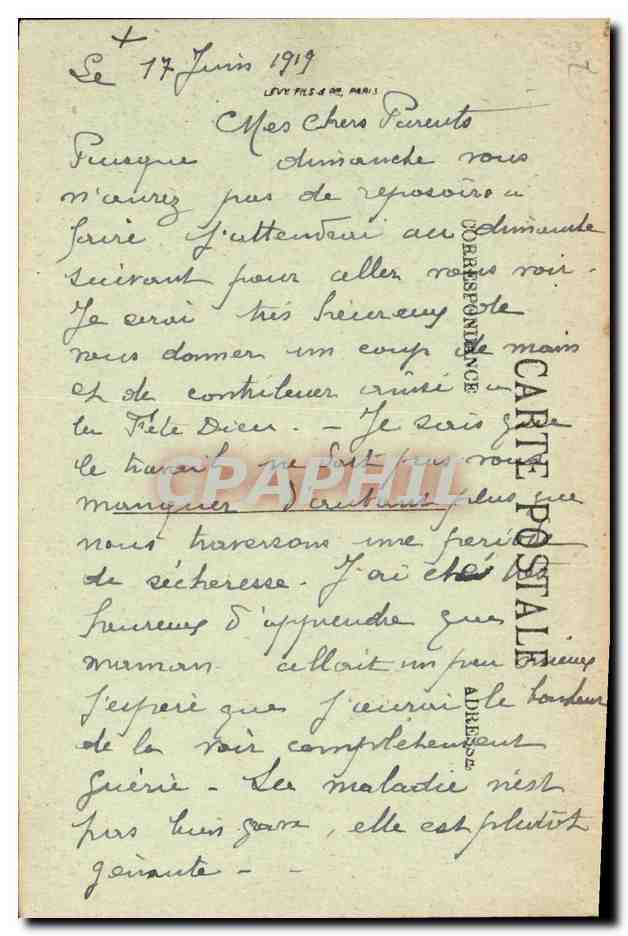 Le 17 Juin 1919
LEVY FILS & Cie, PARIS
Mes Chers Parents
Puisque dimanche vous
n'aurez pas de reposoir a
faire j'attendrai au dimanche
suivant pour aller vous voir.
Je serai très heureux de
vous donner un coup de main
et de contribuer ainsi a
la Fête Dieu. - Je sais que
le travail ne doit pas vous
manquer d'autant plus que
nous traversons une période
de sécheresse. J'ai été très
heureux d'apprendre que
maman allait un peu mieux
j'espère que j'aurai le bonheur
de la voir complètement
guérie - Sa maladie n'est
pas bien grave, elle est plutôt
gênante -
CARTE POSTALE
CORRESPONDANCE
ADRESSE
CPAPHIL